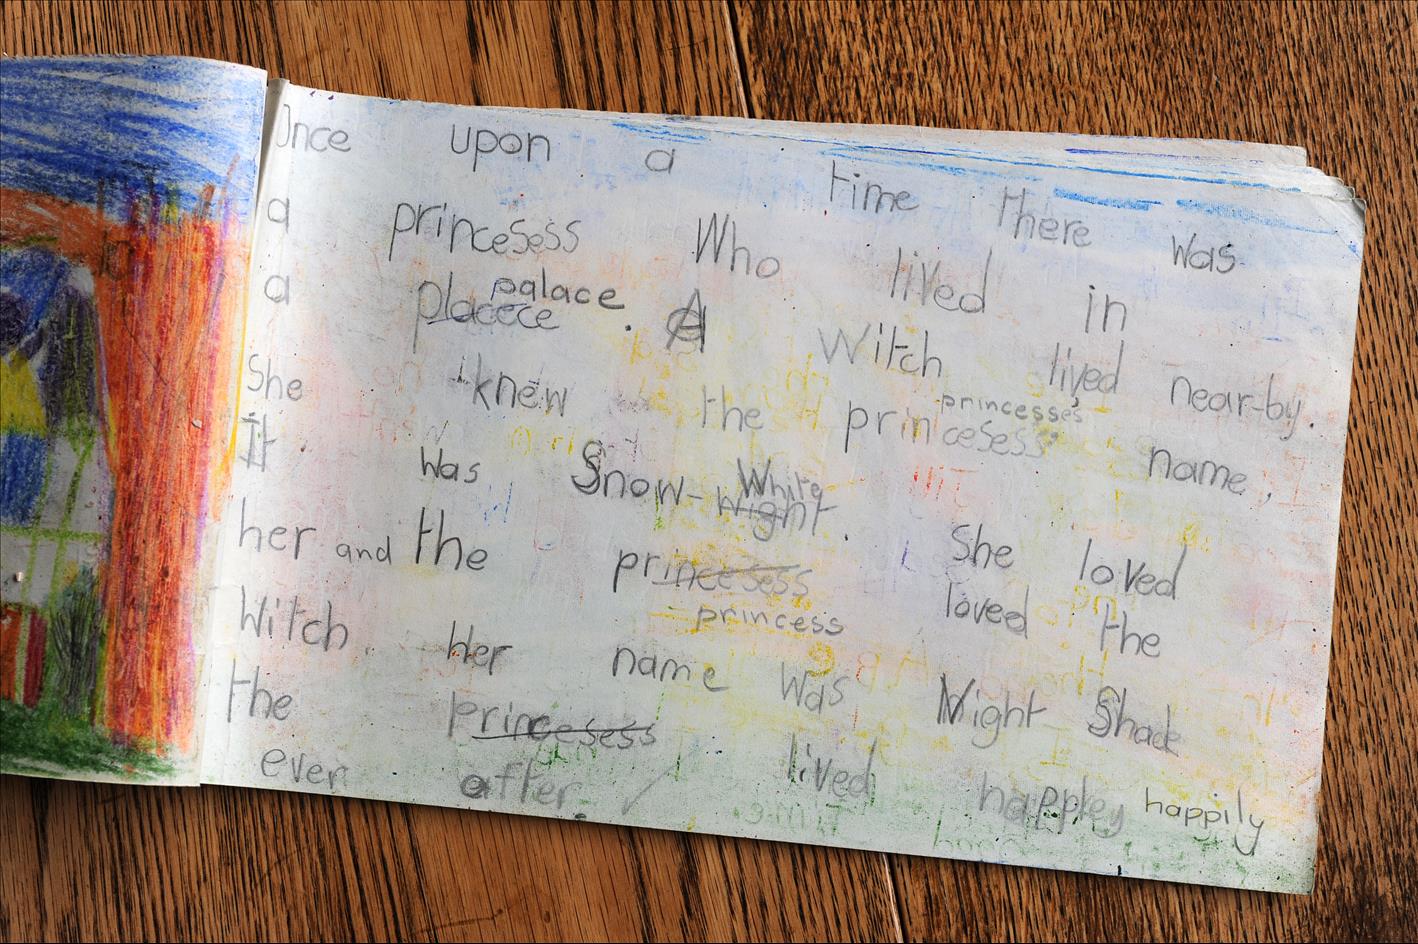 Once upon a time there was
a princesess Who lived in
a placece palace. A Witch lived near-by.
She knew the princesess' princesses name,
It was Snow-Wight White. She loved
her and the princesess princess loved the
Witch. Her name was Night Shade
the princesess lived happley happily
ever after.